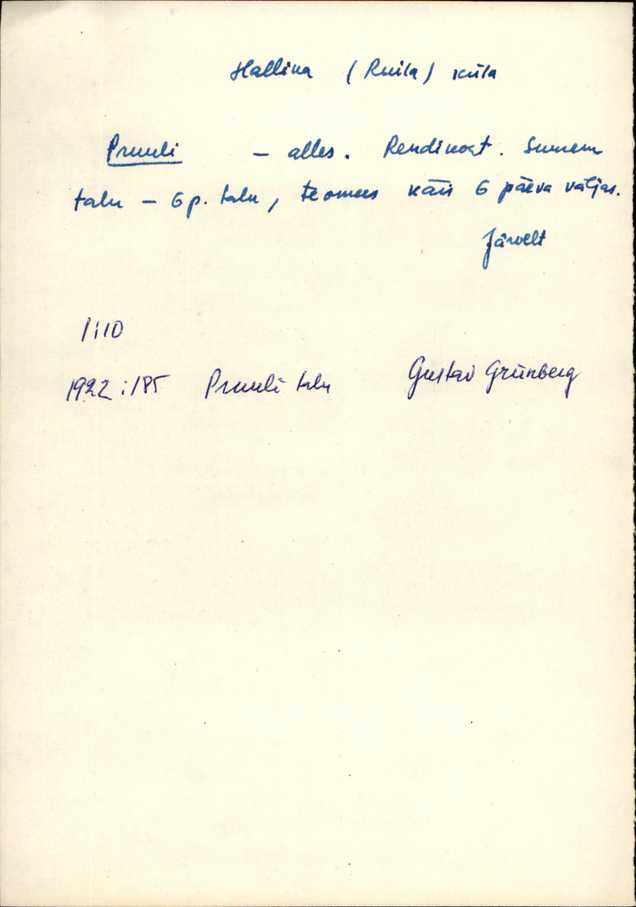 Hallina (Ruila) küla
Pruuli - alles. Rendikoht. Suurem
talu - 6 p. talu, teomees käis 6 päeva väljas.
Järvelt
1:10
1922:185 Pruuli talu Gustav Grünberg